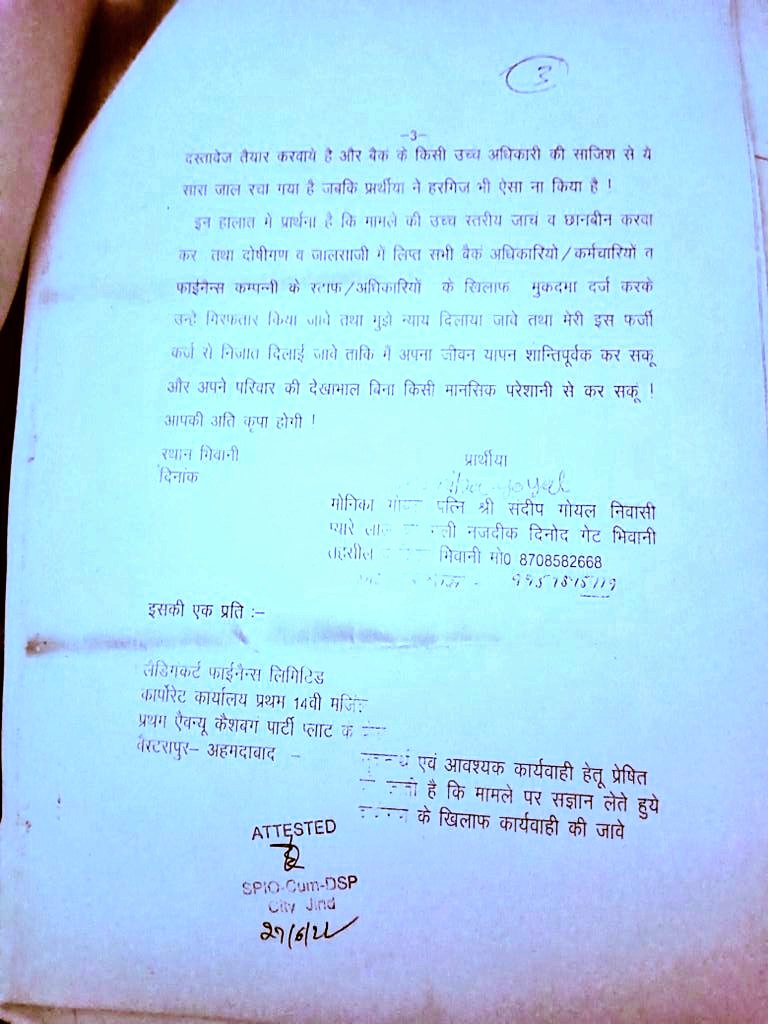 3
-3-
दस्तावेज तैयार करवाये है और बैकं के किसी उच्च अधिकारी की साजिश से ये
सारा जाल रचा गया है जबकि प्रार्थीया ने हरगिज भी ऐसा ना किया है !
इन हालात मे प्रार्थना है कि मामले की उच्च स्तरीय जाचं व छानबीन करवा
कर तथा दोषीगण व जालसाजी में लिप्त सभी बैकं अधिकारियो/कर्मचारियों व
फाईनैन्स कम्पन्नी के स्टाफ/अधिकारियों के खिलाफ मुकदमा दर्ज करके
उन्हे गिरफतार किया जावे तथा मुझे न्याय दिलाया जावे तथा मेरी इस फर्जी
कर्ज से निजात दिलाई जावे ताकि मै अपना जीवन यापन शान्तिपूर्वक कर सकू
और अपने परिवार की देखाभाल बिना किसी मानसिक परेशानी से कर सकूं !
आपकी अति कृपा होगी !
स्थान भिवानी
दिनांक
प्रार्थीया
Goyal
मोनिका पत्नि श्री संदीप गोयल निवासी
प्यारे लाल नजदीक दिनोद गेट भिवानी
तहसील भिवानी मो0 8708582668
इसकी एक प्रति :-
लैडिगकर्ट फाईनैन्स लिमिटिड
कार्पोरेट कार्यालय प्रथम 14वी
प्रथम ऐवन्यू कैशबगं पार्टी प्लाट
वैस्टरापुर- अहमदाबाद -
एवं आवश्यक कार्यवाही हेतू प्रेषित
है कि मामले पर सज्ञान लेते हुये
के खिलाफ कार्यवाही की जावे
ATTESTED
SPIO-Cum-DSP
City Jind